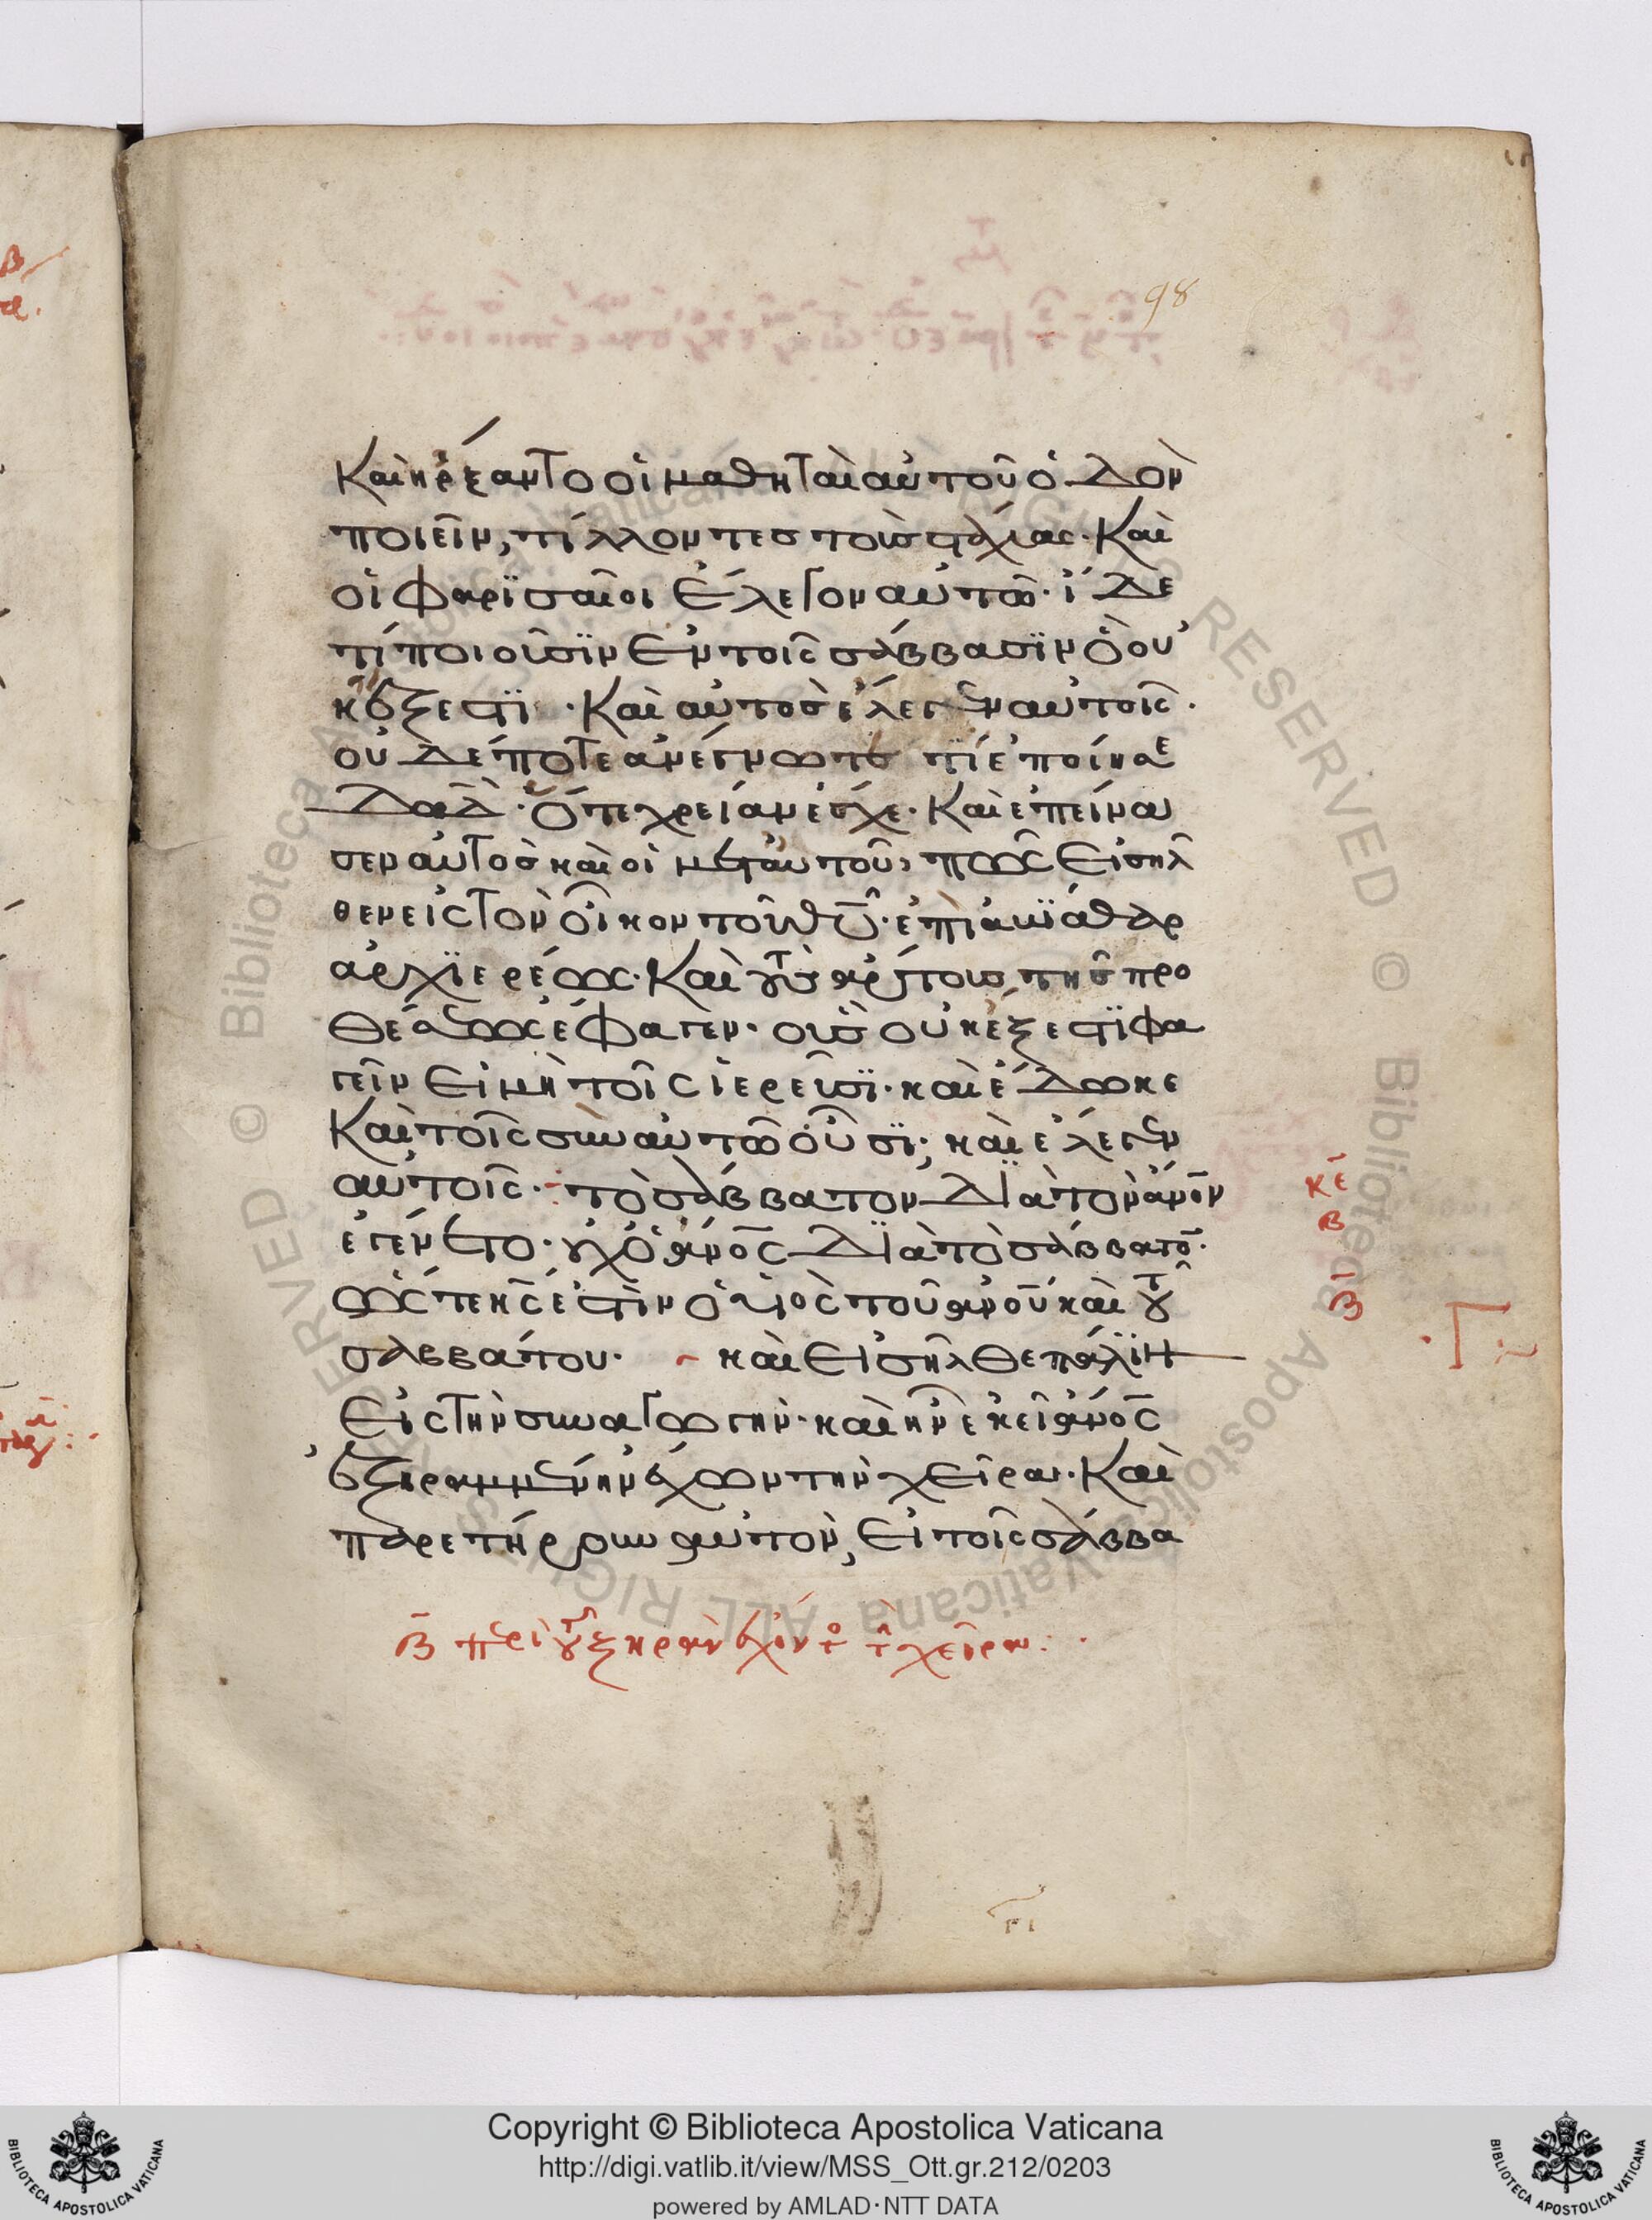 98
Καὶ ἤρξαντο οἱ μαθηταὶ αὐτοῦ ὁδὸν
ποιεῖν, τίλλοντες τοὺς στάχυας· Καὶ
οἱ Φαρϊσαῖοι ἔλεγον αὐτῶ· ἴδε
τί ποιοῦσϊν ἐν τοῖς σάββασϊν ὃ οὐ
κ ἔξεστϊ · Καὶ αὐτὸς ἔλεγεν αὐτοῖς·
οὐδέποτε ἀνέγνωτε τΐ ἐποίησε
Δαδ· ὅτε χρείαν ἔσχε· Καὶ ἐπείνα
σεν αὐτὸς καὶ οἱ μετ αὐτοῦ, πῶς εἰσῆλ
θεν εἰς τὸν οἶκον τοῦ θῡ· ἐπὶ ἀβϊάθαρ
ἀρχϊερέως· Καὶ τοὺς ἄρτους τῆς προ
θέσεως ἔφαγεν· οὓς οὐκ ἔξεστϊ φα
γεῖν εἰ μὴ τοῖς ἱερεῦσϊ· καὶ ἔδωκε
Καὶ τοῖς σὺν αὐτῶ οὖσϊ; καὶ ἔλεγεν
αὐτοῖς· τὸ σάββατον Δϊὰ τὸν ἄνον
ἐγένετο· οὐχ ὁ ἄνος Δϊὰ τὸ σάββατον·
ὥστε κς ἐστὶν ὁ υἱὸς τοῦ ἀνου καὶ τοῦ
σαββάτου· καὶ εἰσῆλθε πάλϊν
εἰς τὴν συναγωγήν· καὶ ἦν ἐκεῖ ἄνος
ἐξηραμμένην ἔχων τὴν χεῖρα· Καὶ
παρετήρουν αὐτὸν, εἰ τοῖς σάββα
κε
β
β
β περὶ τοῦ ξηρὰν ἔχοντος τὴν χεῖρα:
Copyright © Biblioteca Apostolica Vaticana
http://digi.vatlib.it/view/MSS_Ott.gr.212/0203
powered by AMLAD·NTT DATA
BIBLIOTECA APOSTOLICA VATICANA
BIBLIOTECA APOSTOLICA VATICANA
© Biblioteca Apostolica Vaticana ALL RIGHTS RESERVED